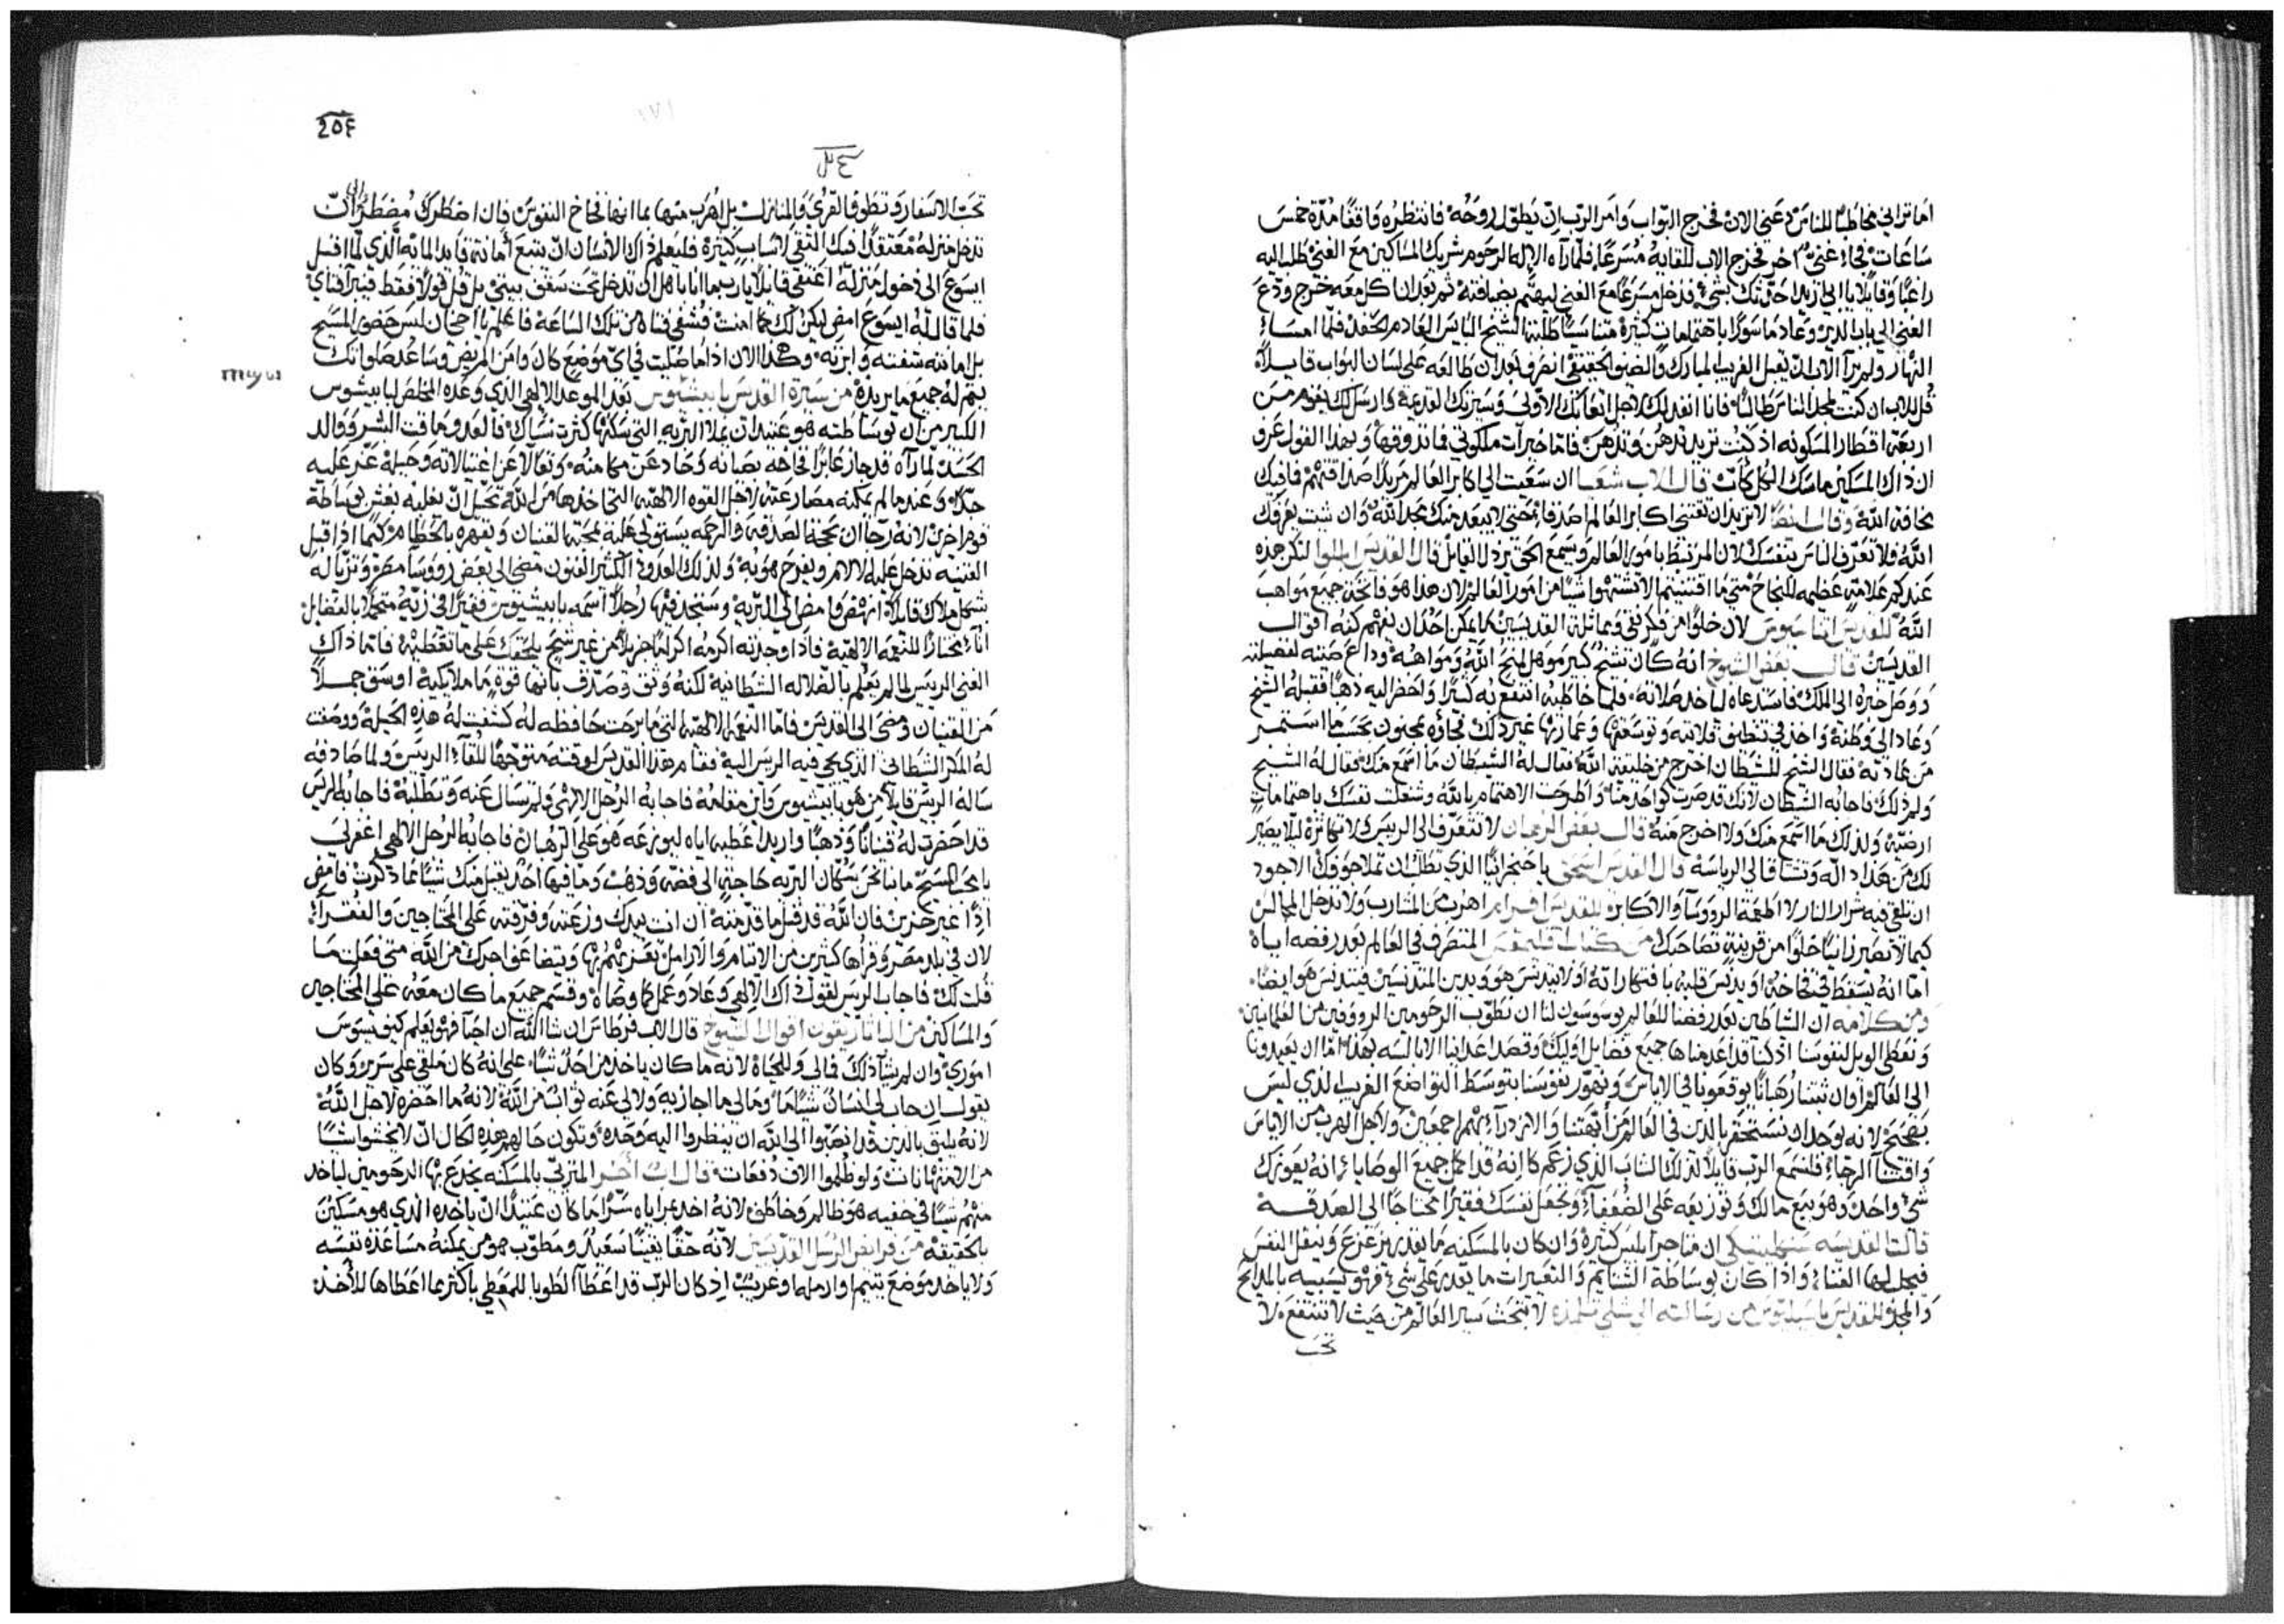 اما تراني مخاطبًا للناس دعني الان فخرج البواب وامر الرب ان يطوّل روحه فانتظره واقفًا مدة خمس
ساعات فجاء غنيّ اخر فخرج الاب للقايه مسرعًا فلما رآه الاله الرحوم شريك المساكين مع الغني طلب اليه
راغبًا وقايلًا يا ابي اريد احدثك بشيء فدخل مسرعًا مع الغني ليهتم بضيافته ثم بعد ان اكل معه خرج وودع
الغني الى باب الدير وعاد ماسورًا باهتمامات كثيرة متناسيًا طلبة الشيخ البايس العادم الحقد فلما امسا
النهار ولم يرا الاب ان يقبل الغريب المبارك والضيف الحقيقي انصرف بعد ان طالعه على لسان البواب قايلًا
قل للاب ان كنت لمجد الناس طالبًا فانا انفذ لك لاجل اتعابك الاولى وسيرتك القديمة وارسل لك بقوم من
اربعة اقطار المسكونه اذ كنت تريد تدهن وتُدهن فاما خيرات ملكوتي فما تذوقها وبهذا القول عرف
ان ذاك المسكين ماسك الكل كان قال الاب شعيا ان سعيت الى اكابر العالم مريدًا صداقتهم فما فيك
مخافة الله وقال ايضًا لا تريد ان تقتني اكابر العالم اصدقا محضى لا يبعد منك مجد الله وان شيت يعرفك
الله ولا تعرف الناس بنفسك لان المرتبط بامور العالم ويسمع الحق يرذل القايل قال القديس لتكن هذه
عندكم علامة عظيمه للنجاح متى ما اقتنيتم الا تشتهوا شيًا من امور العالم لان هذا هو فاتحة جميع مواهب
الله للقديس لان خلوًا من فكر نقي ومماثلة القديسين لا يمكن احدًا ان يفهم كنه اقوال
القديسين قال بعض الشيوخ انه كان شيخ كبير موهل لمنح الله ومواهبه وذاع صيته لفضيلته
ووصل خبره الى الملك فاستدعاه لياخذ صلاته فلما خاطبه انتفع به كثيرًا واحضر اليه ذهبًا فقبله الشيخ
وعاد الى وطنه واخذ في تنظيف قلايته وتوسعتها وعمارتها غير ذلك فجاوه بمجنون بحسب ما استمر
من عادته فقال الشيخ للشيطان اخرج من خليقة الله فقال له الشيطان ما اسمع منك فقال له الشيخ
ولم ذلك فاجابه الشيطان لانك قد صرت كواحد منا واطرحت الاهتمام بالله وشغلت نفسك باهتمامات
ارضية ولذلك ما اسمع منك ولا اخرج منه قال بعض الرهبان لا تتعرف الى الرييس ولا تكاثره ليلا يصير
لك من هذا داله وتشتاق الى الرياسة قال القديس اسحق يا
ان تلقي فيه شرار النار لا اطعمة الروسا والاكابر للقديس افرام اهرب من المشارب ولا تدخل المجالس
كيما لا تصير زانيًا خلوًا من قرينة تصاحبك من كتاب المتصرف في العالم بعد رفضه اياه
اما انه يسقط في فخاخه او يدنس قلبه بافتكاراته او لا يتدنس هو ويدين المتدنسين فيتدنس هو ايضًا
ومن كلامه ان الشياطين بعد رفضنا للعالم يوسوسون لنا ان نطوّب الرحومين الروفين من العلمانيين
ونعطي الويل لنفوسنا اذ كنا قد اعدمناها جميع فضايل اوليك وقصد اعداينا الابالسه بهذا اما ان يعيدونا
الى العالم او ان ثبتنا رهبانًا يوقعونا في الاياس ونهوّر نفوسنا بتوسط التواضع الغريب الذي ليس
بصحيح لانه يوجد ان نستحقر بالذين في العالم من أبّهتنا والازدراء بهم اجمعين ولاجل الهرب من الاياس
واقتنا الرجاء فلنسمع الرب قايلًا لذلك الشاب الذي زعم كانه قد اكمل جميع الوصايا انه يعوزك
شي واحد وهو بيع مالك وتوزيعه على الضعفاء وتجعل نفسك فقيرًا محتاجًا الى الصدقه
قالت القديسه سنكليتيكي ان متاجر ابليس كثيرة وان كان بالمسكنه ما يقدر يزعزع وينقل النفس
فيجلب لها الغناء واذا كان بوساطة الشتايم والتعييرات ما يقدر على شيء فهو يسبيه بالمدايح
والمجد للقديس باسيليوس من رسالته الى تلميذه لا تبحث سير العالم من حيث لا تنتفع لا
تحب
٢٥٤
تحب الاسفار وتطوف القرى والمنازل بل اهرب منها بما انها فخاخ النفوس فان اضطرك مضطر الى ان
تدخل منزله معتقدًا فيك التقى لاسباب كثيرة فليعلم ذاك الانسان ان يتبع امانة قايد المايه الذي لما اقبل
ايسوع الى دخول منزله اعتفى قايلًا يا رب ما انا باهل ان تدخل تحت سقف بيتي بل قل قولًا فقط فيبرا فتاي
فلما قال له ايسوع امض ليكن لك كما امنت فشفي فتاه من تلك الساعة فاعلم يا اخي ان ليس حضور المسيح
بل امانته شفته وابرته وهكذا الان اذا ما صليت في اي موضع كان وامن المريض وساعد صلواتك
يتم له جميع ما يريده من سيرة القديس بايسيوس بعد الموعد الالهي الذي وعده المخلص لبابيشوس
الكبير من ان بوساطته هو عتيد ان يملا البريه التي سكنها كثرت نساك فالعدو ماقت الشر ووالد
الحسد لما رآه قد جاز عابرًا فخاخه بصيانه وحاد عن مكامنه وتعالا عن اغتيالاته وحيله غير عليه
جدًا وعندما لم يمكنه مصارعته لاجل القوه الالهيه التي اخذها من الله تحيل ان يغلبه بغش بوساطة
قوم اخرين لانه رجا ان بحجة الصدقه والرحمه يستولي عليه بمحبة القنيان ويقهره بالحطام كيما اذا قبل
القنيه تدخل عليه الالام ويفرح هو به ولذلك العدو الكثير الفنون مضى الى بعض رووسا مصر وتزيا له
بشكل ملاك قايلًا انهض وامض الى البريه وستجد فيها رجلًا اسمه بابيشيوس فقيرًا في زيه متجملًا بالفضايل
اناء مختارًا للنعمة الالهية فاذا وجدته اكرمه اكرامًا جزيلًا من غير شح يلحقك على ما تعطيه فاما ذاك
الغني الرييس لما لم يعلم بالضلاله الشيطانيه لكنه وثق وصدق بانها قوة ما ملايكية اوسق جملًا
من القنيان ومضى الى القديس فاما النعمه الالهيه التي ما برحت حافظه له كشفت له هذه الحيلة ووصفت
له المكر الشيطاني الذي يجي فيه الرييس اليه فقام هذا القديس لوقته متوجهًا للقاء الرييس ولما صادفه
ساله الرييس قايلًا من هو بابيشيوس واين مقامه فاجابه الرجل الالهي ولم تسال عنه وتطلبه فاجابه الرييس
قد احضرت له قنيانًا وذهبًا واريد اعطيه اياه ليوزعه هو على الرهبان فاجابه الرجل الالهي اغفر لي
يا محب المسيح ما بنا نحن سكان البريه حاجة الى فضه وذهب وما فيها احد يقبل منك شيًا مما ذكرت فامض
اذًا غير حزين فان الله قد قبل ما قدمته ان انت بيدك وزعته وفرقته على المحتاجين والفقراء
لان في بلد مصر وقراها كثيرين من الايتام والارامل تعزيهم بها ويتضاعف اجرك من الله متى فعلت ما
قلت لك فاجاب الرييس لقول ذاك الالهي وعاد وعمل كما وصاه وقسم جميع ما كان معه على المحتاجين
والمساكين من الباتاريقون اقوال الشيوخ قال الاب ان شا الله ان احيا فهو يعلم كيف يسوس
اموري وان لم يشا ذلك فما لي وللحياة لانه ما كان ياخذ من احد شيًا على انه كان ملقى على سرير وكان
يقول ان جاب لي انسان شيًا ما وما لي ما اجازيه ولا لي عنه ثواب من الله لانه ما احضره لاجل الله
لانه يليق بالذين قد انصبّوا الى الله ان ينظروا اليه وحده وتكون حالهم هذه الحال ان لا يحسبوا شيًا
من الامتهانات ولو ظلموا الاف دفعات قال اب اخر المتزيّي بالمسكنه يخدع بها الرحومين لياخذ
منهم شيًا في خفيه هو ظالم وخاطف لانه اخذ سرًا ما كان عتيدًا ان ياخذه الذي هو مسكين
بالحقيقة من فرايض الرسل القديسين لانه حقًا يقينًا سعيد ومطوّب هو من يمكنه مساعدة نفسه
ولا ياخذ موضع يتيم وارمله وغريب اذ كان الرب قد اعطا الطوبا للمعطي باكثر مما اعطاها للاخذ